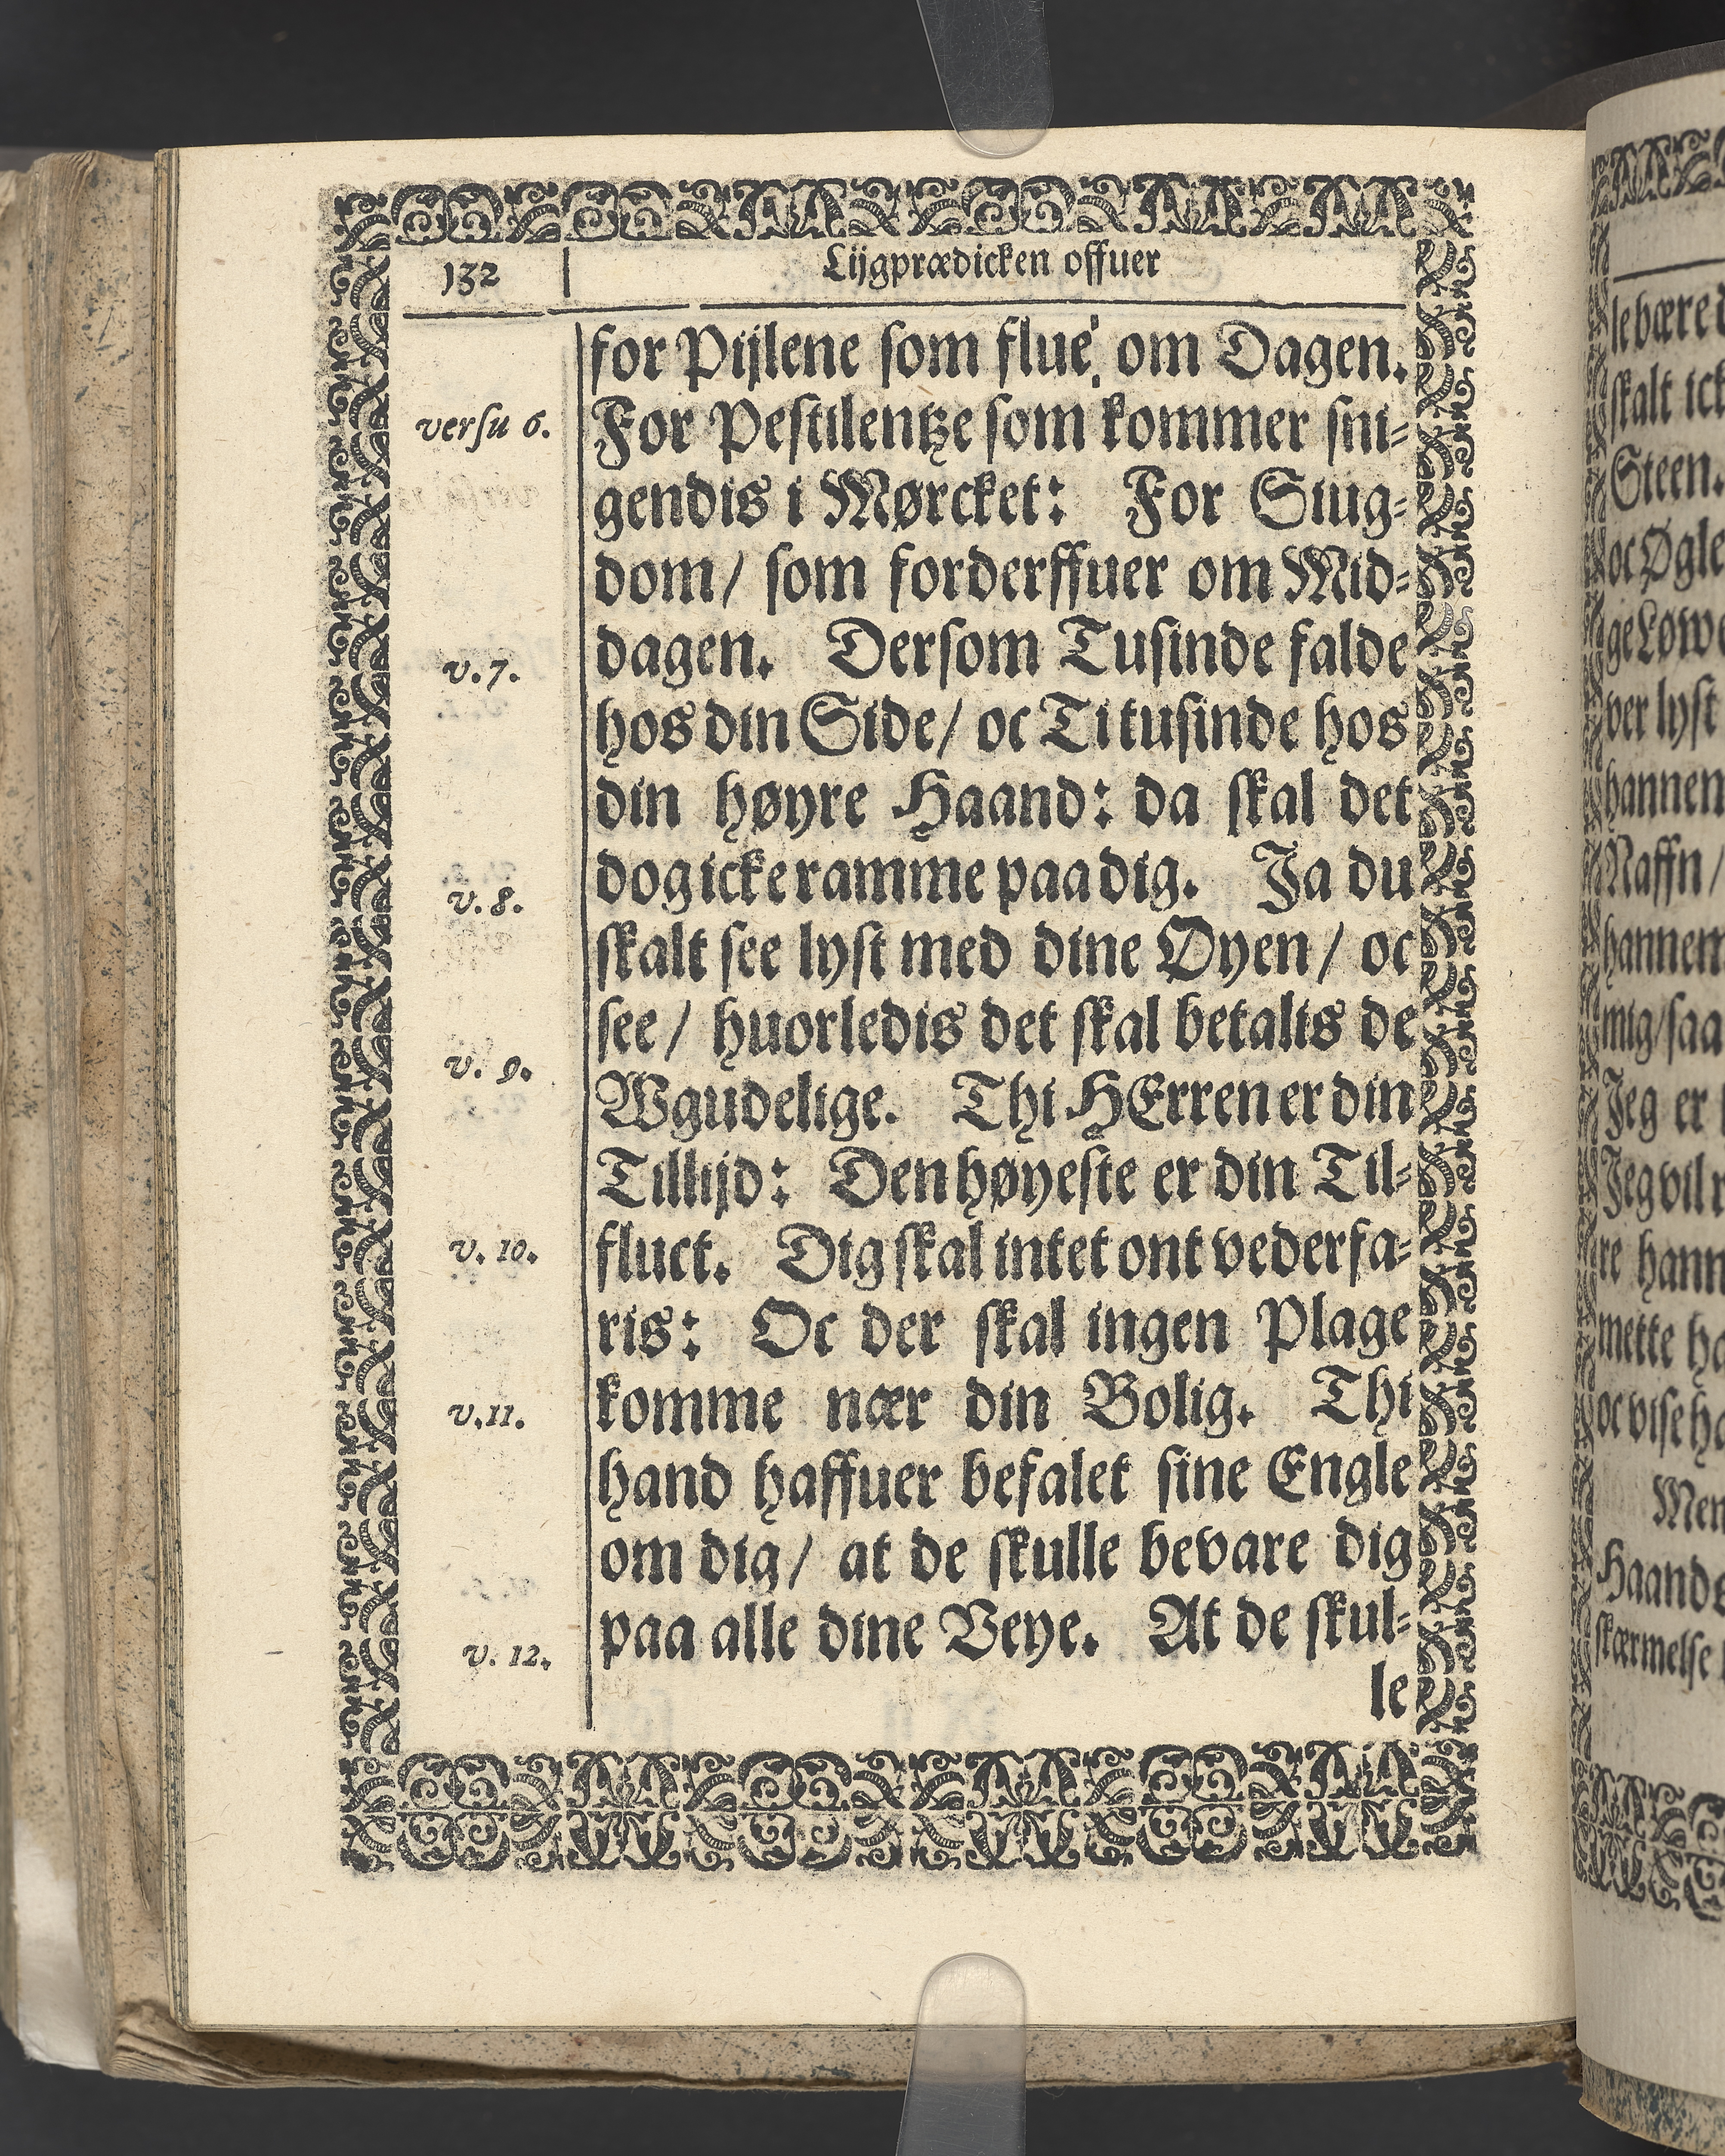 132
Lijgprædicken offuer
for Pijlene som flue om Dagen.
versu 6.
For Pestilentze som kommer sni⸗
gendis i Mørcket: For Siug⸗
dom/ som forderffuer om Mid⸗
v. 7.
dagen. Dersom Tusinde falde
hos din Side/ oc Ti tusinde hos
din høyre Haand: da skal det
v. 8.
dog icke ramme paa dig. Ja du
skalt see lyst med dine Øyen/ oc
see/ huorledis det skal betalis de
v. 9.
Wgudelige. Thi HErren er din
Tillijd: Den høyeste er din Til⸗
v. 10.
fluct. Dig skal intet ont vederfa⸗
ris: Oc der skal ingen Plage
v. 11.
komme nær din Bolig. Thi
hand haffuer befalet sine Engle
om dig/ at de skulle bevare dig
v. 12.
paa alle dine Veye. At de skul⸗
le
skalt
Steen.
oc Øgle
hannem
Naffn/
hannem
Jeg er
Jeg vil
mette